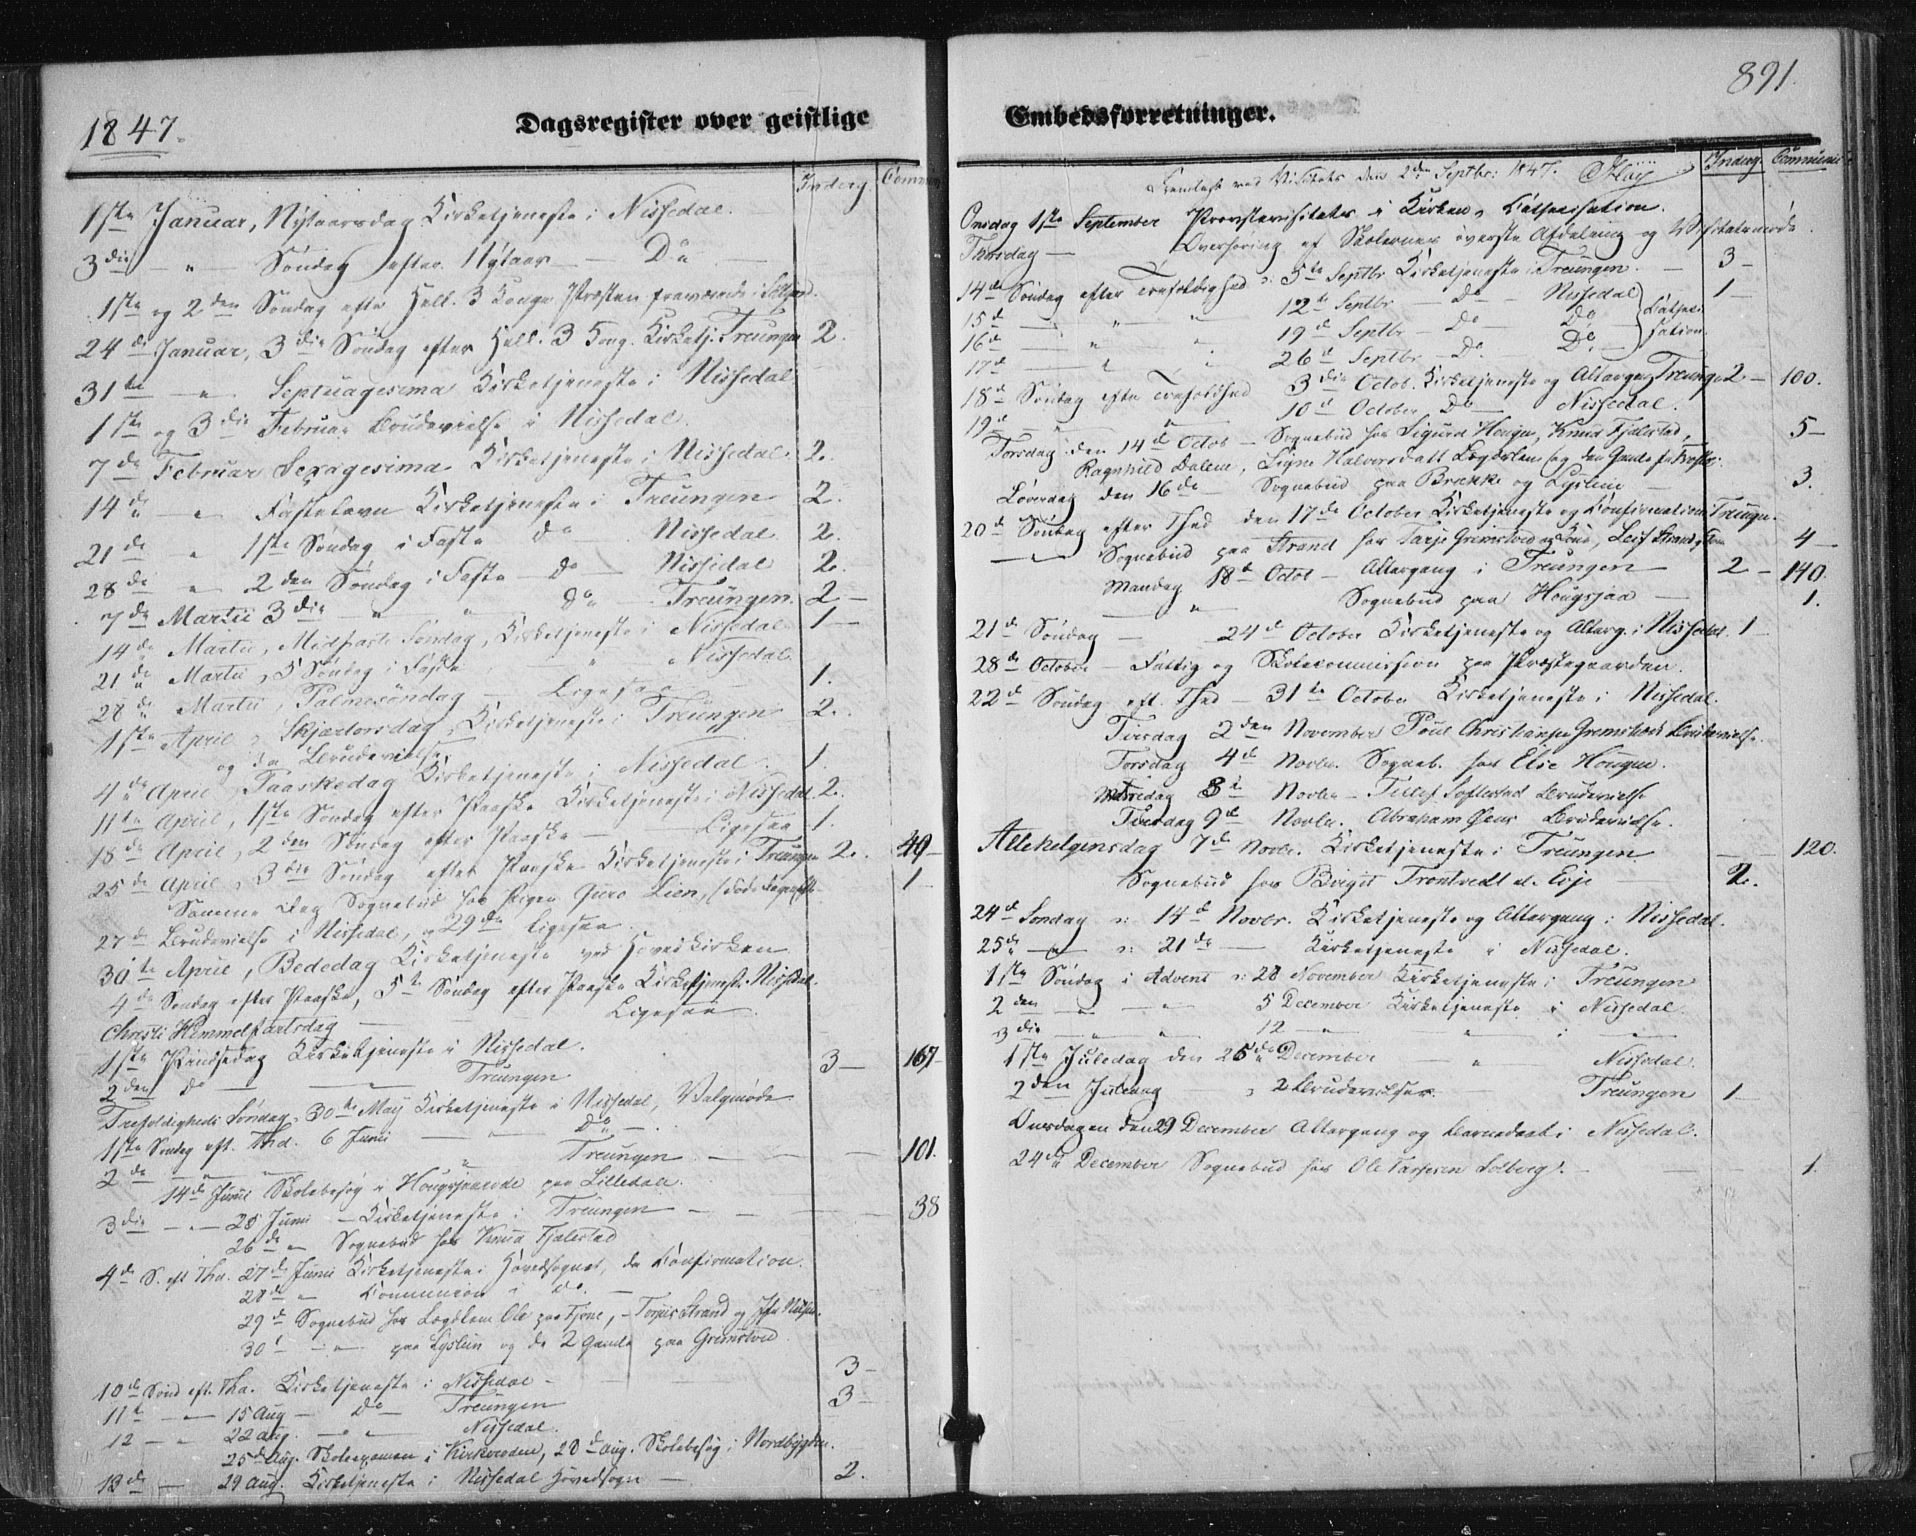 1847.
Dagsregister over geistlige
Inderg. Commun
1ste Januar, Nytaarsdag Kirketjeneste i Nissedal.
3die — " — Söndag efter Nytaar — Do
1ste og 2den Söndag efter Hell. 3 Konger Præsten fraværende i
24de Januar, 3die Söndag efter Hell. 3 Kong. Kirketj. Treungen 2.
31te " Septuagesima Kirketjeneste i Nissedal
1ste og 3die Februar Brudevielse i Nissedal.
7de Februar Sexagesima Kirketjeneste i Nissedal. 2.
14de — " Fastelavn Kirketjeneste i Treungen 2.
21de " 1ste Söndag i Faste Do Nissedal 2.
28de " 2den Söndag i Faste — Do — Nissedal 2.
7de Martii 3die — " " Do Treungen. 2 —
14de Martii, Midfaste Söndag, Kirketjeneste i Nissedal 1 —
21de Martii, 5 Söndag i Faste " Nissedal.
28de Martii, Palmesöndag — Ligesaa — 1.
1ste April, Skjærtorsdag, Kirketjeneste i Treungen 2.
og do Brudevielse
4de April, Paaskedag Kirketjeneste i Nissedal. 1.
11te April, 1ste Söndag efter Paaske Kirketjeneste i Nissedal 2.
18de April, 2den Söndag efter Paaske — Ligesaa 1.
25de April, 3die Söndag efter Paaske Kirketjeneste i Treungen 2. 49 —
Samme Dag Sognebud hos Pigen Guro Lien, 1 —
27de Brudevielse i Nissedal, 29de Ligesaa
30te April, Bededag Kirketjeneste ved Hovedkirken
4de Söndag efter Paaske, 5te Söndag efter Paaske Kirketjeneste Nissedal.
Christi Himmelfartsdag — Ligesaa
1ste Pindsedag Kirketjeneste i Nissedal. 3 — 167 —
2den Do — Treungen
Trefoldigheds Söndag, 30te May Kirketjeneste i Nissedal, Valgmöde
1ste Söndag eft. Thd. 6 Junii — " Do —
2de — " — " Treungen — 101.
14de Junii Skolebesög i paa Lilledal.
3die — " — 20 Junii — Kirketjeneste i Treungen — 38
26de " Sognebud hos Knud Fjalestad
4de S. eft Thd. 27de Junii Kirketjeneste i Hovedsognet, do Confirmation.
28de " Communion i do. —
29de Sognebud hos Lægdslem Ole paa Tjone, — Torjus Strand og
30te — " — paa Lyslein og de 2 Gamle paa Gremstved.
10de Sönd eft. Thd. Kirketjeneste i Nissedal — 3 —
11te — " — 15 Aug — Do — Treungen 3 —
12 — " 22 Aug. — " — Nissedal.
25de Aug. Skoleexamen i Kirkeroden, 28de Aug. Skolebesög i Nordbygden.
13de — 29 Aug. Kirketjeneste i Nissedal Hovedsogn — 2.
891.
Embedsforretninger.
Inderg Communic
Fremlagt ved Visitats den 2den Septbr: 1847.
Onsdag 1ste September Provstevisitats i Kirken, Catheisation.
Thorsdag — Overhöring af Skolernes överste Afdeling og Visitatsmöde.
14de Söndag efter Trefoldighed 5te Septbr Kirketjeneste i Treungen. — 3 —
15de — " " 12te Septbr — Do — Nissedal 1 —
16de — " " 19de Septbr — Do — Do
17de — " " 26de Septbr — Do — Do —
18de Söndag efter Trefoldhed 3die Octob. Kirketjeneste og Altergang Treungen 2 — 100.
19de — " 10de October Do — Nissedal.
Torsdag den 14de Octob — Sognebud hos Sigurd Hougen, Knud Fjalestad, 5 —
Ragnhild Dalene, Signe Halvorsdatt
Löverdag den 16de — Sognebud paa Brække og Lyslein — 3.
20de Söndag efter Thed den 17de October Kirketjeneste og Confirmation Treungen.
— Sognebud paa Strand hos Tarje Gremstved og Kone, Leif Strand 4 —
Mandag 18de Octob — Altergang i Treungen — 2 — 140.
— " Sognebud paa Hougsjaa — 1.
21de Söndag — 24de October Kirketjeneste og Alterg. i Nissedal 1 —
28de October — Fattig og Skolecommission paa Præstegaarden.
22de Söndag eft. Thed — 31te October Kirketjeneste i Nissedal.
Tirsdag 2den November Poul Christiansen Gremstveds Brudevielse.
Torsdag 4de Novbr. Sogneb. hos Elie Hougen.
Novbr — Brudevielse
Tirsdag 9de Novbr. Abraham Brudevielse.
Allehelgensdag 7de Novbr. Kirketjeneste i Treungen — 120.
Sognebud hos Birgit Trontvedt — 2.
24de Söndag 14de Novbr. Kirketjeneste og Altergang i Nissedal.
25de — " 21de — Kirketjeneste i Nissedal.
1ste Söndag i Advent 28 November Kirketjeneste i Treungen
2den — " 5 December Kirketjeneste i Nissedal.
3die — " " 12 — " " " "
1ste Juledag den 25de December — " Nissedal.
2den Juledag 2 Brudevielser. Treungen 1 —
Onsdagen den 29 December Altergang og Barnedaab i Nissedal.
24de December Sognebud hos Ole Tarjesen Solberg. — 1.